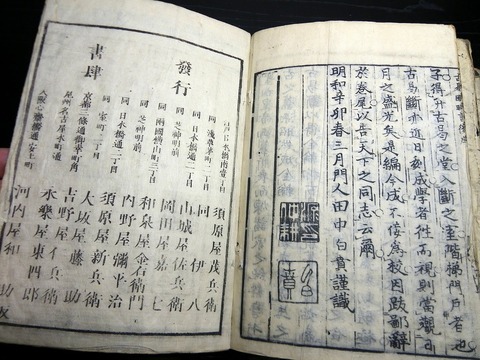 子得升古易之堂入斷之室階梯門戸者也
古易斷亦近日刻成學者往而視則當觀
月之盛光矣是編今成不侫爲校因跋鄙辭
於卷尾以善天下之同志云爾
明和辛卯春三月門人田中白賁謹識
發行
書肆
江戸日本橋南壹丁目 須原屋茂兵衛
同 淺草茅町二丁目 同 伊八
同 日本橋通二丁目 山城屋佐兵衛
同 芝神明前 岡田屋嘉七
同 兩國横山町三丁目 和泉屋金右衛門
同 芝神明前 内野屋彌平治
同 日本橋通二丁目 須原屋新兵衛
同 室町二丁目 大坂屋藤助
京都二條通御幸町角 吉野屋仁兵衛
尾州名古屋本町通 永樂屋東四郎
河内屋和助